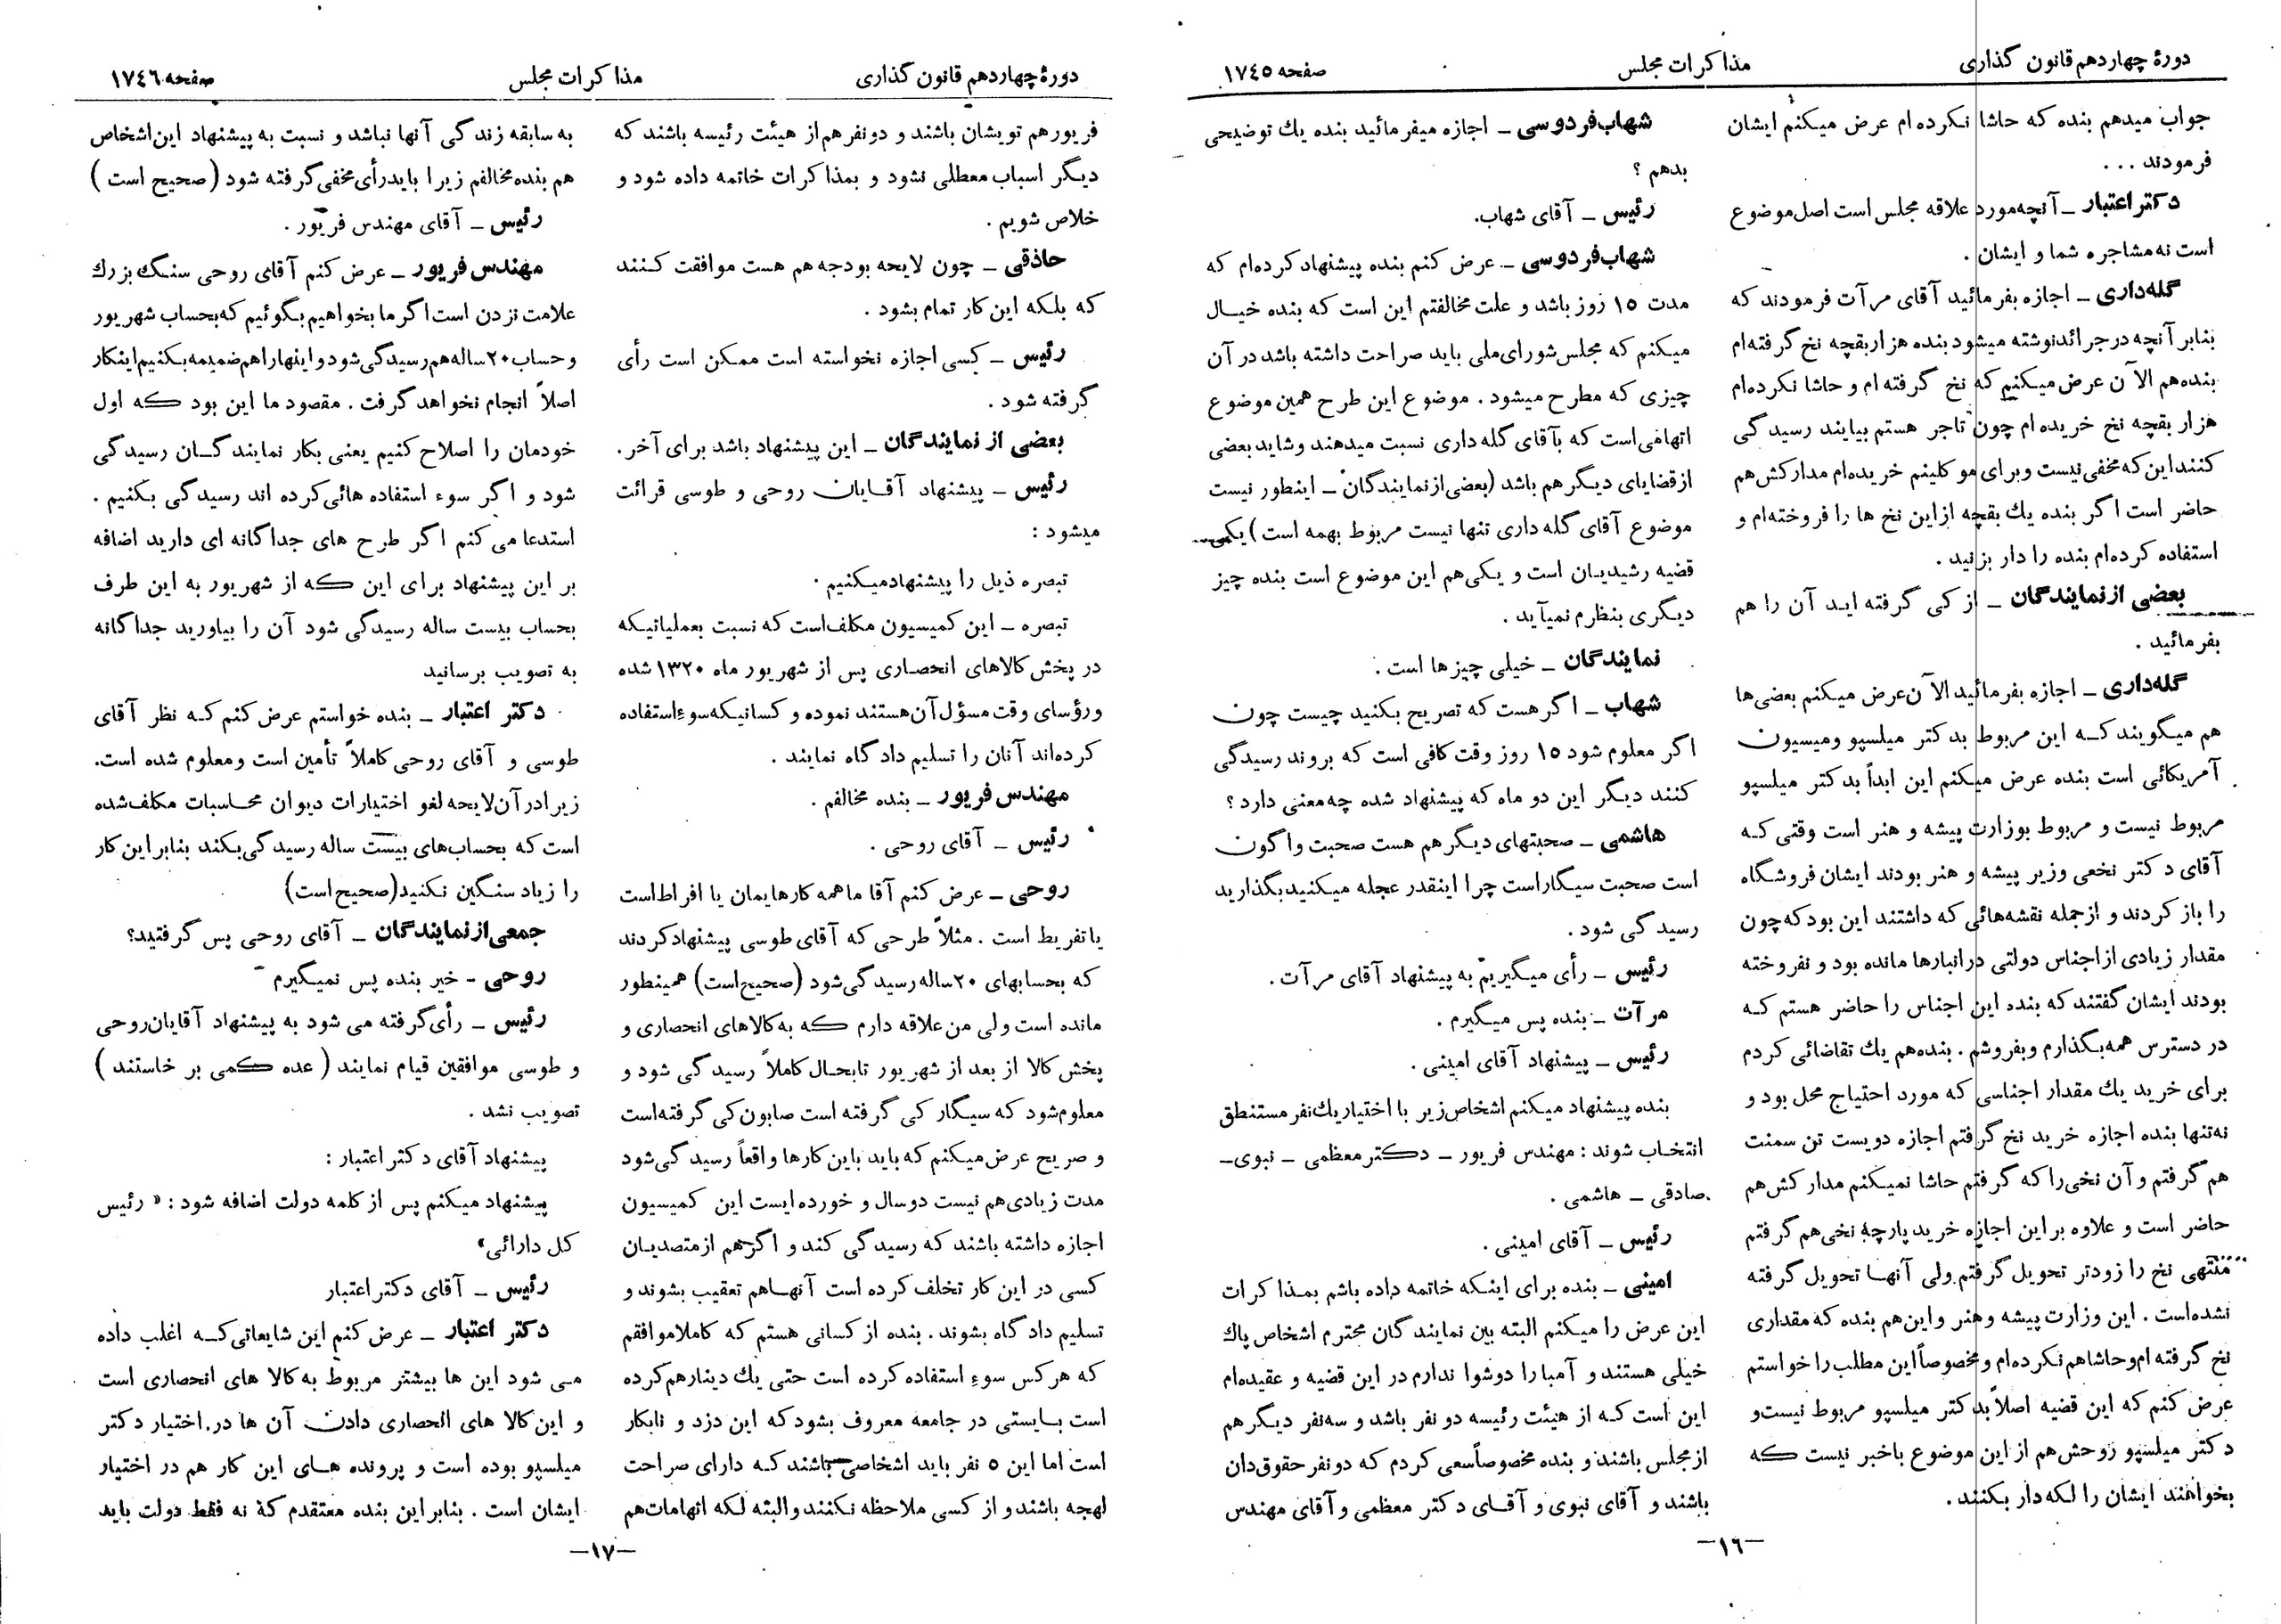 دورهٔ چهاردهم قانون گذاری
مذاکرات مجلس
صفحه ۱۷٤٥
جواب میدهم بنده که حاشا نکرده ام عرض میکنم ایشان
فرمودند ...
دکتر اعتبار ــ آنچه مورد علاقه مجلس است اصل موضوع
است نه مشاجره شما و ایشان .
گله‌داری ــ اجازه بفرمائید آقای مرآت فرمودند که
بنابر آنچه در جرائد نوشته میشود بنده هزار بقچه نخ گرفته‌ام
بنده هم الآن عرض میکنم که نخ گرفته ام و حاشا نکرده‌ام
هزار بقچه نخ خریده ام چون تاجر هستم بیایند رسیدگی
کنند این که مخفی نیست و برای موکلینم خریده‌ام مدارکش هم
حاضر است اگر بنده یك بقچه از این نخ ها را فروخته‌ام و
استفاده کرده‌ام بنده را دار بزنید .
بعضی از نمایندگان ــ از کی گرفته اید آن را هم
بفرمائید .
گله‌داری ــ اجازه بفرمائید الآن عرض میکنم بعضی‌ها
هم میگویند که این مربوط بدکتر میلسپو ومیسیون
آمریکائی است بنده عرض میکنم این ابداً بدکتر میلسپو
مربوط نیست و مربوط بوزارت پیشه و هنر است وقتی که
آقای دکتر نخعی وزیر پیشه و هنر بودند ایشان فروشگاه
را باز کردند و از جمله نقشه‌هائی که داشتند این بود که چون
مقدار زیادی از اجناس دولتی در انبارها مانده بود و نفروخته
بودند ایشان گفتند که بنده این اجناس را حاضر هستم که
در دسترس همه بگذارم وبفروشم . بنده هم یك تقاضائی کردم
برای خرید یك مقدار اجناسی که مورد احتیاج محل بود و
نه تنها بنده اجازه خرید نخ گرفتم اجازه دویست تن سمنت
هم گرفتم و آن نخی را که گرفتم حاشا نمیکنم مدارکش هم
حاضر است و علاوه بر این اجازه خرید پارچهٔ نخی هم گرفتم
منتهی نخ را زودتر تحویل گرفتم ولی آنها تحویل گرفته
نشده است . این وزارت پیشه وهنر واین هم بنده که مقداری
نخ گرفته ام وحاشا هم نکرده‌ام ومخصوصاً این مطلب را خواستم
عرض کنم که این قضیه اصلاً بدکتر میلسپو مربوط نیست و
دکتر میلسپو روحش هم از این موضوع باخبر نیست که
بخواهند ایشان را لکه دار بکنند .
شهاب فردوسی ــ اجازه میفرمائید بنده یك توضیحی
بدهم ؟
رئیس ــ آقای شهاب.
شهاب فردوسی ــ عرض کنم بنده پیشنهاد کرده‌ام که
مدت ۱٥ روز باشد و علت مخالفتم این است که بنده خیال
میکنم که مجلس شورای ملی باید صراحت داشته باشد در آن
چیزی که مطرح میشود . موضوع این طرح همین موضوع
اتهامی است که بآقای گله داری نسبت میدهند وشاید بعضی
از قضایای دیگر هم باشد (بعضی از نمایندگان ــ اینطور نیست
موضوع آقای گله داری تنها نیست مربوط بهمه است) یکی
قضیه رشیدیان است و یکی هم این موضوع است بنده چیز
دیگری بنظرم نمیآید .
نمایندگان ــ خیلی چیزها است .
شهاب ــ اگر هست که تصریح بکنید چیست چون
اگر معلوم شود ۱٥ روز وقت کافی است که بروند رسیدگی
کنند دیگر این دو ماه که پیشنهاد شده چه معنی دارد ؟
هاشمی ــ صحبتهای دیگر هم هست صحبت واگون
است صحبت سیگار است چرا اینقدر عجله میکنید بگذارید
رسیدگی شود .
رئیس ــ رأی میگیریم به پیشنهاد آقای مرآت .
مرآت ــ بنده پس میگیرم .
رئیس ــ پیشنهاد آقای امینی .
بنده پیشنهاد میکنم اشخاص زیر با اختیار یك نفر مستنطق
انتخاب شوند : مهندس فریور ــ دکتر معظمی ــ نبوی ــ
صادقی ــ هاشمی .
رئیس ــ آقای امینی .
امینی ــ بنده برای اینکه خاتمه داده باشم بمذاکرات
این عرض را میکنم البته بین نمایندگان محترم اشخاص پاك
خیلی هستند و آمبا را دوشوا ندارم در این قضیه و عقیده‌ام
این است که از هیئت رئیسه دو نفر باشد و سه نفر دیگر هم
از مجلس باشند و بنده مخصوصاً سعی کردم که دو نفر حقوق دان
باشند و آقای نبوی و آقای دکتر معظمی و آقای مهندس
ــ۱٦ــ
دورهٔ چهاردهم قانون گذاری
مذاکرات مجلس
صفحه ۱۷٤٦
فریور هم تویشان باشند و دو نفر هم از هیئت رئیسه باشند که
دیگر اسباب معطلی نشود و بمذاکرات خاتمه داده شود و
خلاص شویم .
حاذقی ــ چون لایحه بودجه هم هست موافقت کنند
که بلکه این کار تمام بشود .
رئیس ــ کسی اجازه نخواسته است ممکن است رأی
گرفته شود .
بعضی از نمایندگان ــ این پیشنهاد باشد برای آخر .
رئیس ــ پیشنهاد آقایان روحی و طوسی قرائت
میشود :
تبصره ذیل را پیشنهاد میکنیم .
تبصره ــ این کمیسیون مکلف است که نسبت بعملیاتیکه
در پخش کالاهای انحصاری پس از شهریور ماه ۱۳۲۰ شده
و رؤسای وقت مسؤل آن هستند نموده و کسانیکه سوءاستفاده
کرده‌اند آنان را تسلیم دادگاه نمایند .
مهندس فریور ــ بنده مخالفم .
رئیس ــ آقای روحی .
روحی ــ عرض کنم آقا ما همه کارهایمان یا افراط است
یا تفریط است . مثلاً طرحی که آقای طوسی پیشنهاد کردند
که بحسابهای ۲۰ ساله رسیدگی شود (صحیح است) همینطور
مانده است ولی من علاقه دارم که به کالاهای انحصاری و
پخش کالا از بعد از شهریور تا بحال کاملاً رسیدگی شود و
معلوم شود که سیگار کی گرفته است صابون کی گرفته است
و صریح عرض میکنم که باید باین کارها واقعاً رسیدگی شود
مدت زیادی هم نیست دو سال و خورده ایست این کمیسیون
اجازه داشته باشند که رسیدگی کند و اگر هم از متصدیان
کسی در این کار تخلف کرده است آنها هم تعقیب بشوند و
تسلیم دادگاه بشوند . بنده از کسانی هستم که کاملا موافقم
که هر کس سوء استفاده کرده است حتی یك دینار هم کرده
است بایستی در جامعه معروف بشود که این دزد و نابکار
است اما این ٥ نفر باید اشخاصی باشند که دارای صراحت
لهجه باشند و از کسی ملاحظه نکنند و البته لکه اتهامات هم
به سابقه زندگی آنها نباشد و نسبت به پیشنهاد این اشخاص
هم بنده مخالفم زیرا باید رأی مخفی گرفته شود (صحیح است )
رئیس ــ آقای مهندس فریور .
مهندس فریور ــ عرض کنم آقای روحی سنگ بزرك
علامت نزدن است اگر ما بخواهیم بگوئیم که بحساب شهریور
و حساب ۲۰ ساله هم رسیدگی شود و اینها را هم ضمیمه بکنیم اینکار
اصلاً انجام نخواهد گرفت . مقصود ما این بود که اول
خودمان را اصلاح کنیم یعنی بکار نمایندگان رسیدگی
شود و اگر سوء استفاده هائی کرده اند رسیدگی بکنیم .
استدعا می کنم اگر طرح های جداگانه ای دارید اضافه
بر این پیشنهاد برای این که از شهریور به این طرف
بحساب بیست ساله رسیدگی شود آن را بیاورید جداگانه
به تصویب برسانید
دکتر اعتبار ــ بنده خواستم عرض کنم که نظر آقای
طوسی و آقای روحی کاملاً تأمین است و معلوم شده است.
زیرا در آن لایحه لغو اختیارات دیوان محاسبات مکلف شده
است که بحساب‌های بیست ساله رسیدگی بکند بنابر این کار
را زیاد سنگین نکنید (صحیح است)
جمعی از نمایندگان ــ آقای روحی پس گرفتید؟
روحی - خیر بنده پس نمیگیرم
رئیس ــ رأی گرفته می شود به پیشنهاد آقایان روحی
و طوسی موافقین قیام نمایند ( عده کمی بر خاستند )
تصویب نشد .
پیشنهاد آقای دکتر اعتبار :
پیشنهاد میکنم پس از کلمه دولت اضافه شود : « رئیس
کل دارائی»
رئیس ــ آقای دکتر اعتبار
دکتر اعتبار ــ عرض کنم این شایعاتی که اغلب داده
می شود این ها بیشتر مربوط به کالا های انحصاری است
و این کالا های انحصاری دادن آن ها در اختیار دکتر
میلسپو بوده است و پرونده های این کار هم در اختیار
ایشان است . بنابر این بنده معتقدم که نه فقط دولت باید
ــ۱۷ــ